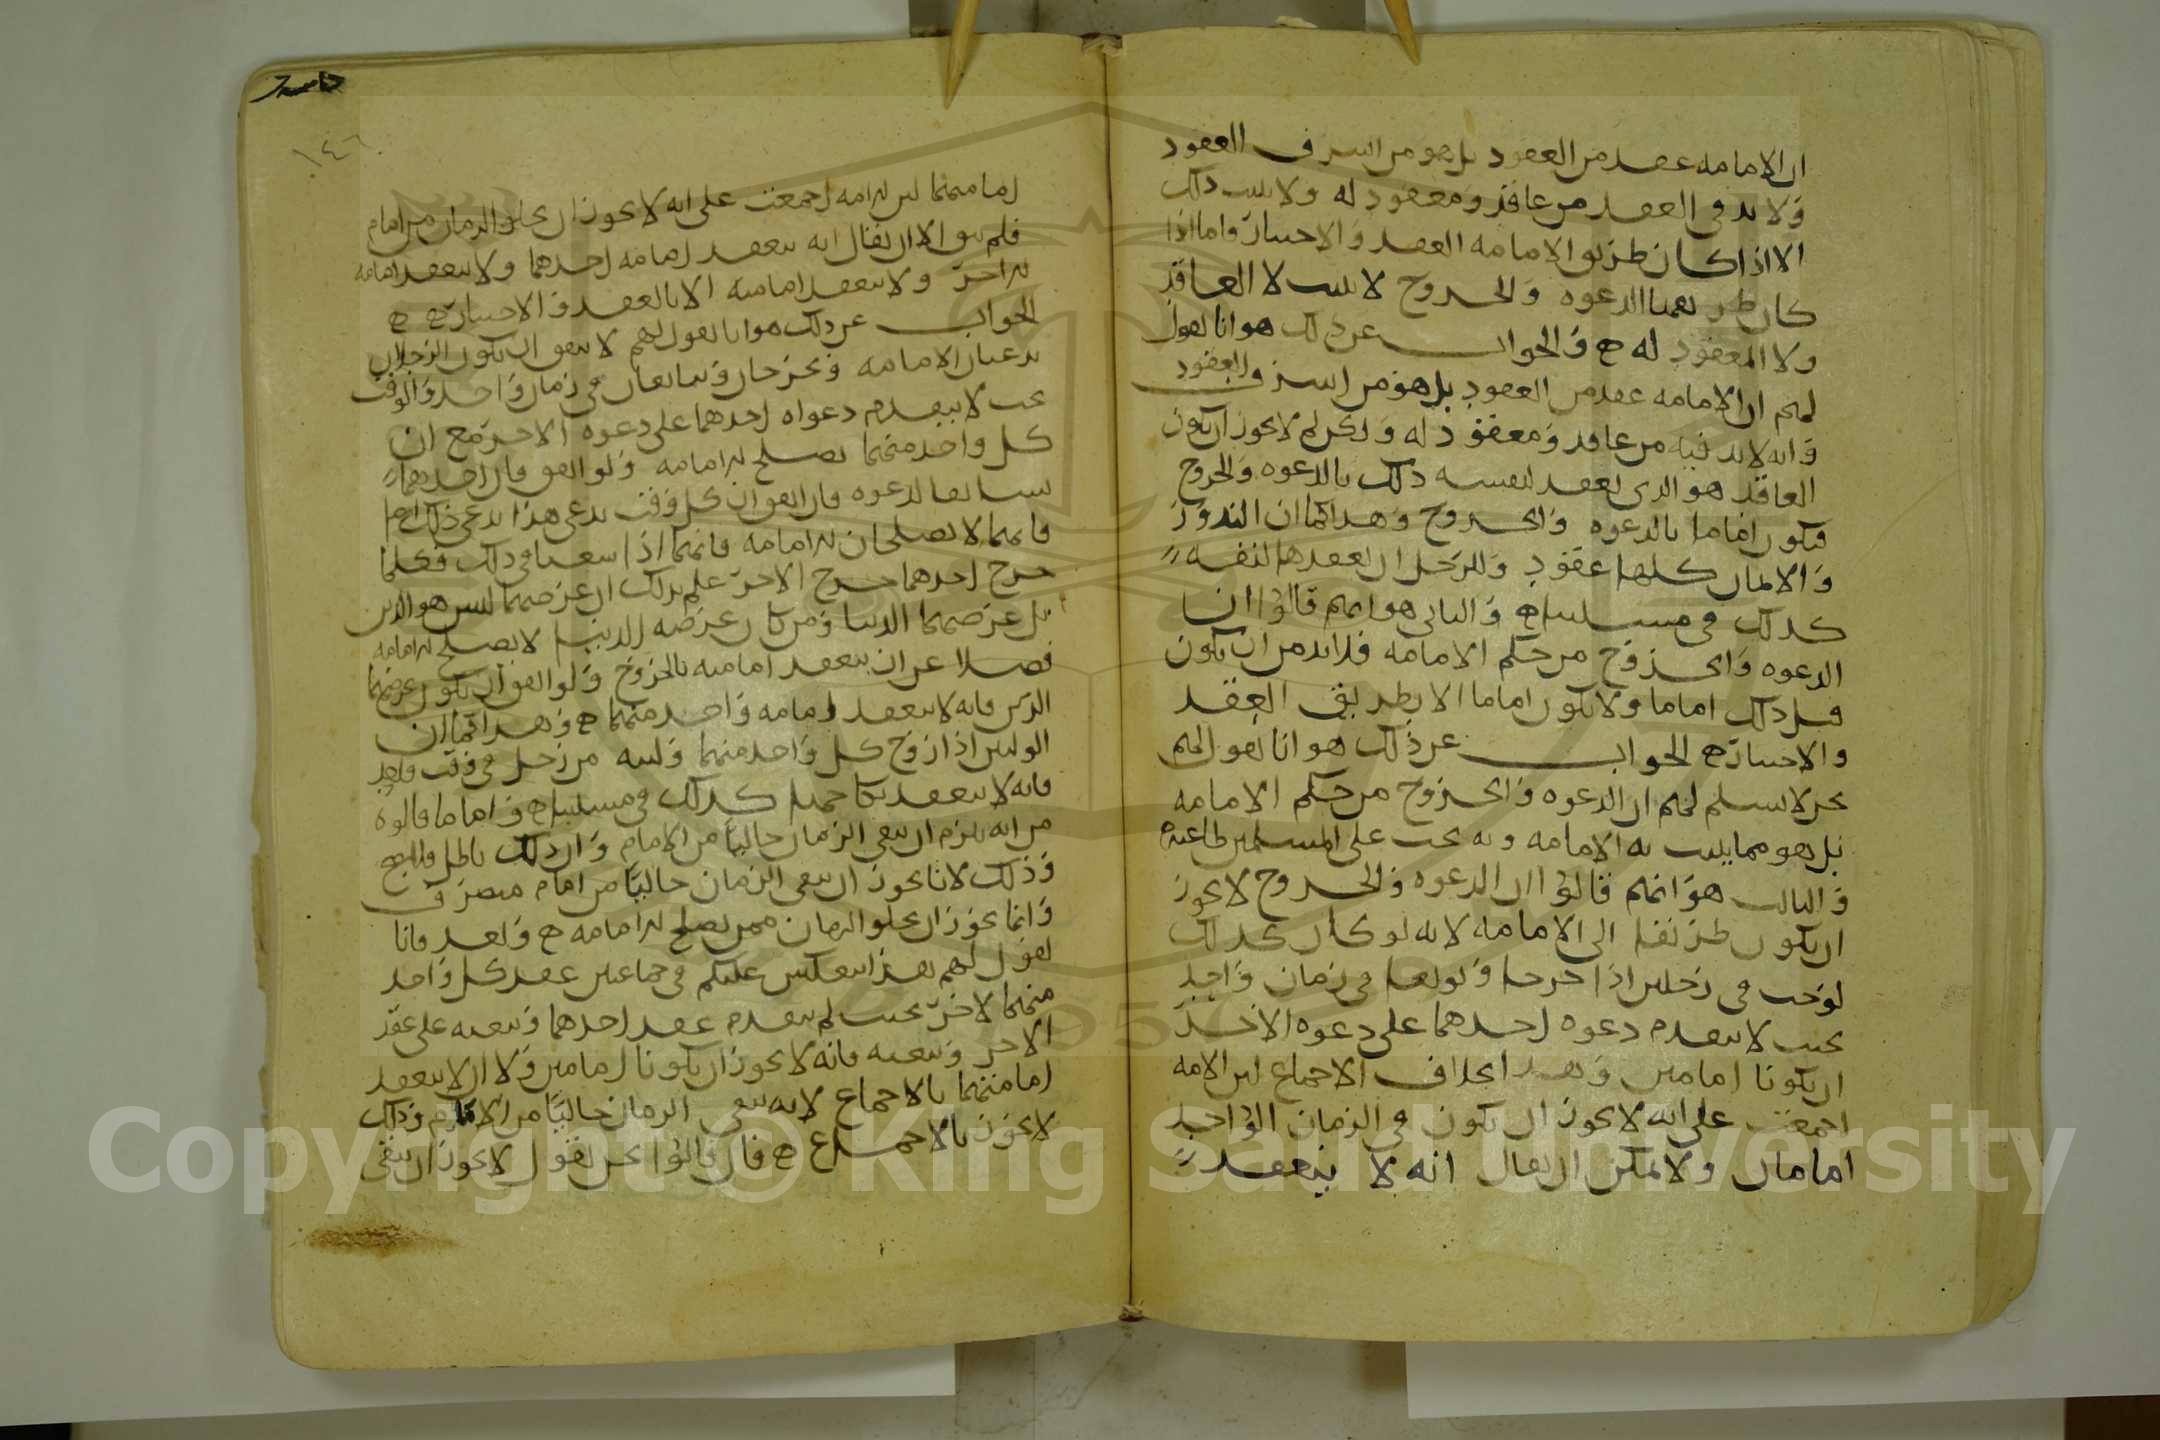 ان الامامه عقد من العقود بل هو من اشرف العقود
ولا بد فى العقد من عاقد ومعقود له ولا يثبت ذلك
الا اذا كان طريق الامامه العقد والاختيار فاما اذا
كان طريقها الدعوه والخروج لا يثبت لا العاقد
ولا المعقود له ه والجواب عن ذلك هو انا نقول
لهم ان الامامه عقد من العقود بل هو من اشرف العقود
وانه لا بد فيه من عاقد ومعقود له ولكن لم لا يجوز ان يكون
العاقد هو الذى يعقد لنفسه ذلك بالدعوه والخروج
فيكون اماما بالدعوه والخروج وهذا كما ان النذور
والايمان كلها عقود وللرجل ان يعقدها لنفسه
كذلك فى مسئلتنا ه والثانى هو انهم قالوا ان
الدعوه والخروج من حكم الامامه فلا بد من ان يكون
قبل ذلك اماما ولا يكون اماما الا بطريق العقد
والاختيار ه الجواب عن ذلك هو انا نقول لهم
نحن لا نسلم لكم ان الدعوه والخروج من حكم الامامه
بل هو مما يثبت به الامامه وبه يجب على المسلمين طاعته
والثالث هو انهم قالوا ان الدعوه والخروج لا يجوز
ان يكون طريقا الى الامامه لانه لو كان كذلك
لوجب فى رجلين اذا خرجا فى زمان واحد
بحيث لا يتقدم دعوه احدهما على دعوه الاخر
ان يكونا امامين وهذا بخلاف الاجماع لان الامه
اجمعت على انه لا يجوز ان يكون فى الزمان الواحد
امامان ولا يمكن ان يقال انه لا ينعقد
١٤٦
امامتهما لان الامه اجمعت على انه لا يجوز ان يخلو الزمان من امام
فلم يبق الا ان يقال انه ينعقد امامه احدهما ولا ينعقد امامه
الاخر ولا ينعقد امامته الا بالعقد والاختيار ه ه
الجواب عن ذلك هو انا نقول لهم لا يتفق ان يكون الرجلان
يدعيان الامامه ويخرجان ويبايعان فى زمان واحد والوقت
بحيث لا يتقدم دعواه احدهما على دعوه الاخر مع ان
كل واحد منهما يصلح للامامه ولو اتفق فان احدهما
سابقا لدعوه فان اتفق ان كل وقت يدعى هذا يدعى ذلك
فانهما لا يصلحان للامامه فانهما اذا فى ذلك فكلما
خرج احدهما خرج الاخر علم بذلك ان غرضهما ليس هو الدين
بل غرضهما الدنيا ومن كان غرضه الدنيا لا يصلح للامامه
فضلا عن ان ينعقد امامته بالخروج ولو اتفق ان يكون غرضهما
الدين فانه لا ينعقد امامه واحد منهما ه وهذا كما ان
الوليين اذا زوج كل واحد منهما وليته من رجل فى وقت واحد
فانه لا ينعقد نكاحهما كذلك فى مسئلتنا ه واما ما قالوه
من انه يلزم ان يبقى الزمان خاليا من الامام وان ذلك باطل
وذلك لانا نجوز ان يبقى الزمان خاليا من امام متصرف
وانما نجوز ان يخلو الزمان ممن يصلح للامامه ه وبعد فانا
نقول لهم هذا ينعكس عليكم فى جماعتين عقد كل واحد
منهما لاخر بحيث لم يتقدم عقد احدهما وبيعته على عقد
الاخر وبيعته فانه لا يجوز ان يكونا امامين ولا ان لا ينعقد
امامتهما بالاجماع لانه يبقى الزمان خاليا من الامام وذلك
لا يجوز بالاجماع ه فان قالوا نحن نقول لا يجوز ان يتفق
Copyright © King Saud University